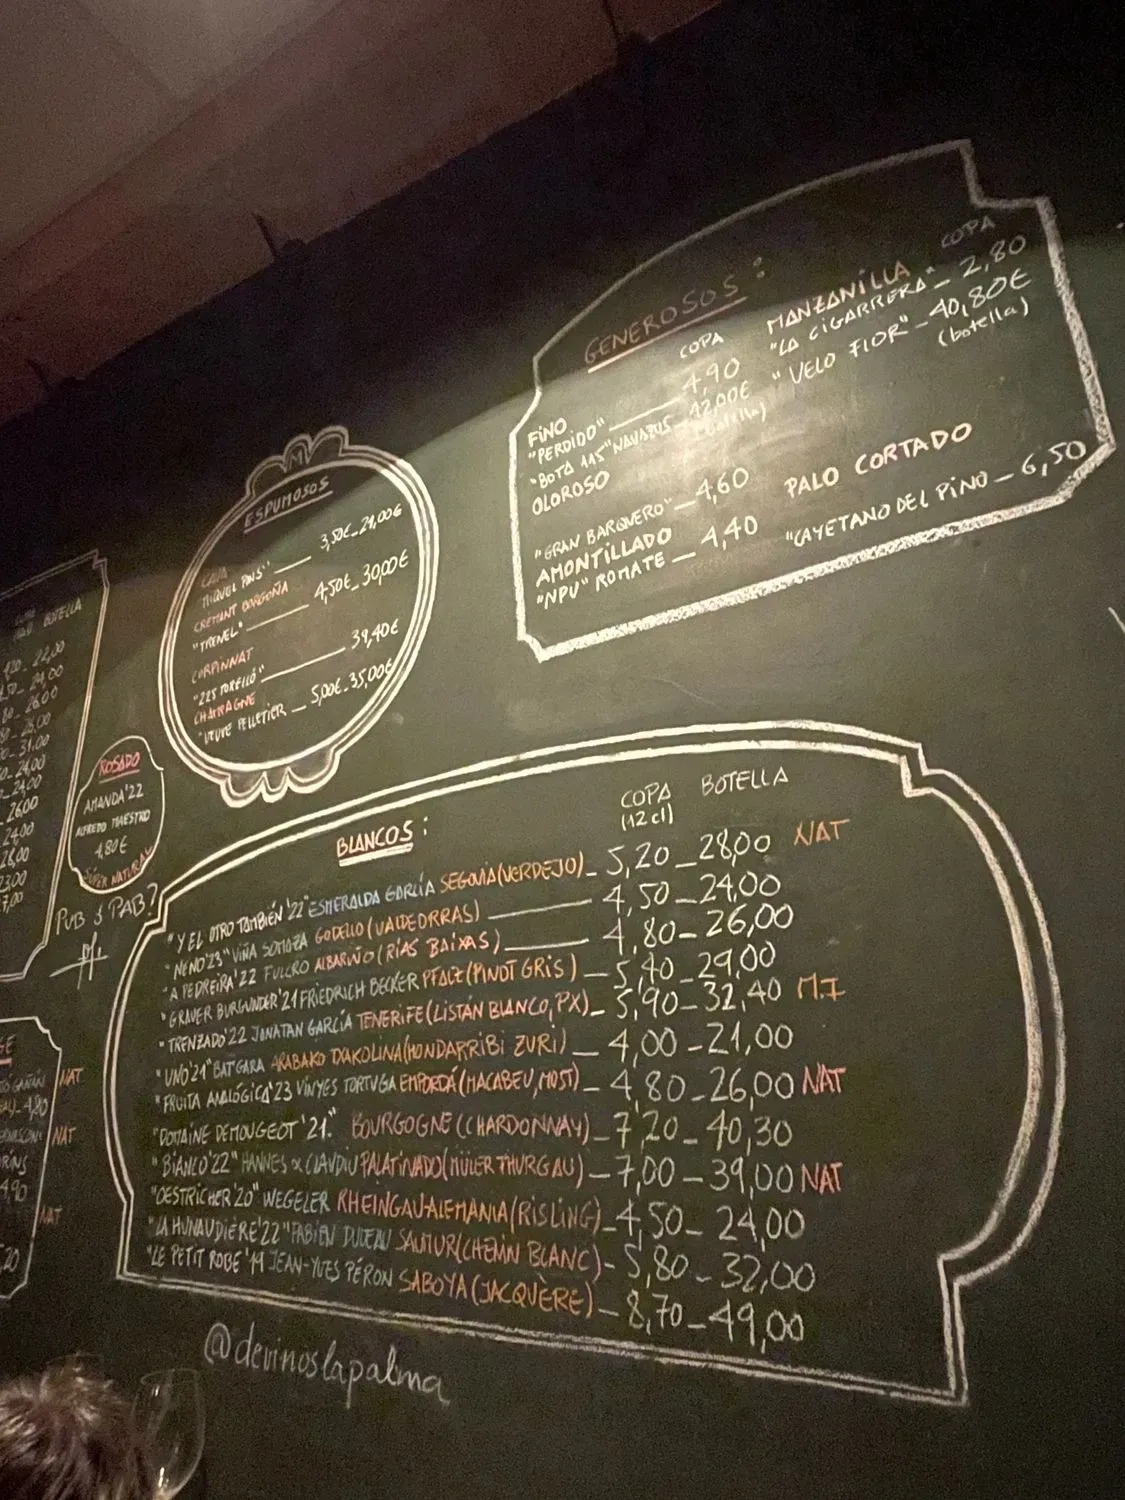 GENEROSOS:
COPA
FINO
"PERDIDO" 4,90
"BOTA 115" NAVAZOS - 42,00€
(botella)
OLOROSO
"GRAN BARQUERO" - 4,60
AMONTILLADO
"NPU" ROMATE - 4,40
COPA
MANZANILLA
"LA CIGARRERA" - 2,80
"VELO FLOR" - 40,80€
(botella)
PALO CORTADO
"CAYETANO DEL PINO - 6,50
M
ESPUMOSOS
CAVA
MIQUEL PONS" 3,50€ - 21,00€
CRÉMANT BORGOÑA
"TRENEL" 4,50€ - 30,00€
CORPINNAT
"225 TORELLÓ" 39,40€
CHAMPAGNE
"VEUVE PELLETIER - 5,00€ - 35,00€
BOTELLA
22,00
26,00
31,00
24,00
26,00
24,00
28,00
23,00
ROSADO
AMANDA'22
ALFREDO MAESTRO
4,80€
SÚPER NATURAL
PUB & PAB?
BLANCOS:
COPA
(12cl)
BOTELLA
"Y EL OTRO TAMBIÉN '22" ESMERALDA GARCÍA SEGOVIA (VERDEJO) - 5,20 - 28,00 NAT
"NENO'23" VIÑA SOMOZA GODELLO (VALDEORRAS) 4,50 - 24,00
"A PEDREIRA'22 FULCRO ALBARIÑO (RÍAS BAIXAS) 4,80 - 26,00
"GRAUER BURGUNDER'21 FRIEDRICH BECKER PFALZ (PINOT GRIS) - 5,40 - 29,00
"TRENZADO'22 JONATAN GARCÍA TENERIFE (LISTÁN BLANCO, PX) - 5,90 - 32,40 M.I
"UNO'21" BAT GARA ARABAKO TXAKOLINA (HONDARRIBI ZURI) - 4,00 - 21,00
"FRUITA ANALÓGICA'23 VINYES TORTUGA EMPORDÁ (MACABEU, MOST) - 4,80 - 26,00 NAT
"DOMAINE DEMOUGEOT '21." BOURGOGNE (CHARDONNAY) - 7,20 - 40,30
"BIANCO'22" HANNES & CLAUDIU PALATINADO (MÜLER THURGAU) - 7,00 - 39,00 NAT
"OESTRICHER'20" WEGELER RHEINGAU-ALEMANIA (RISLING) - 4,50 - 24,00
"LA HUNAUDIÈRE'22" FABIEN DUVEAU SAUMUR (CHENIN BLANC) - 5,80 - 32,00
"LE PETIT ROBE'19 JEAN-YVES PÉRON SABOYA (JACQUÈRE) - 8,70 - 49,00
NAT
NAT
4,90
NAT
@devinoslapalma